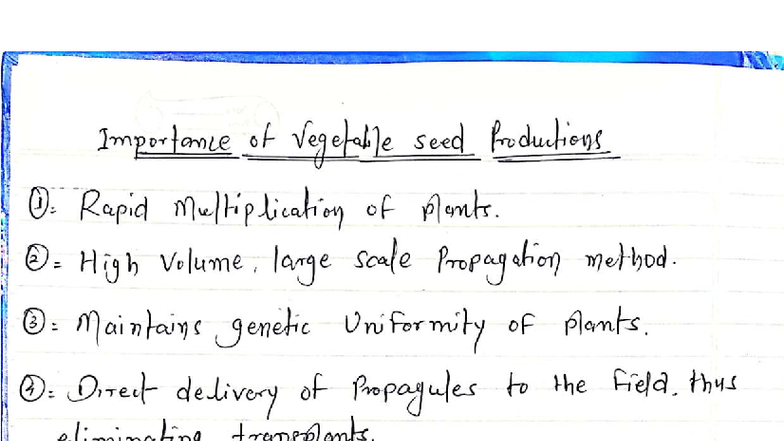 Importance of Vegetable seed Productions
①= Rapid Multiplication of plants.
②= High Volume, large scale Propagation method.
③= Maintains genetic Uniformity of plants.
④= Direct delivery of Propagules to the field. thus
eliminating transplants.